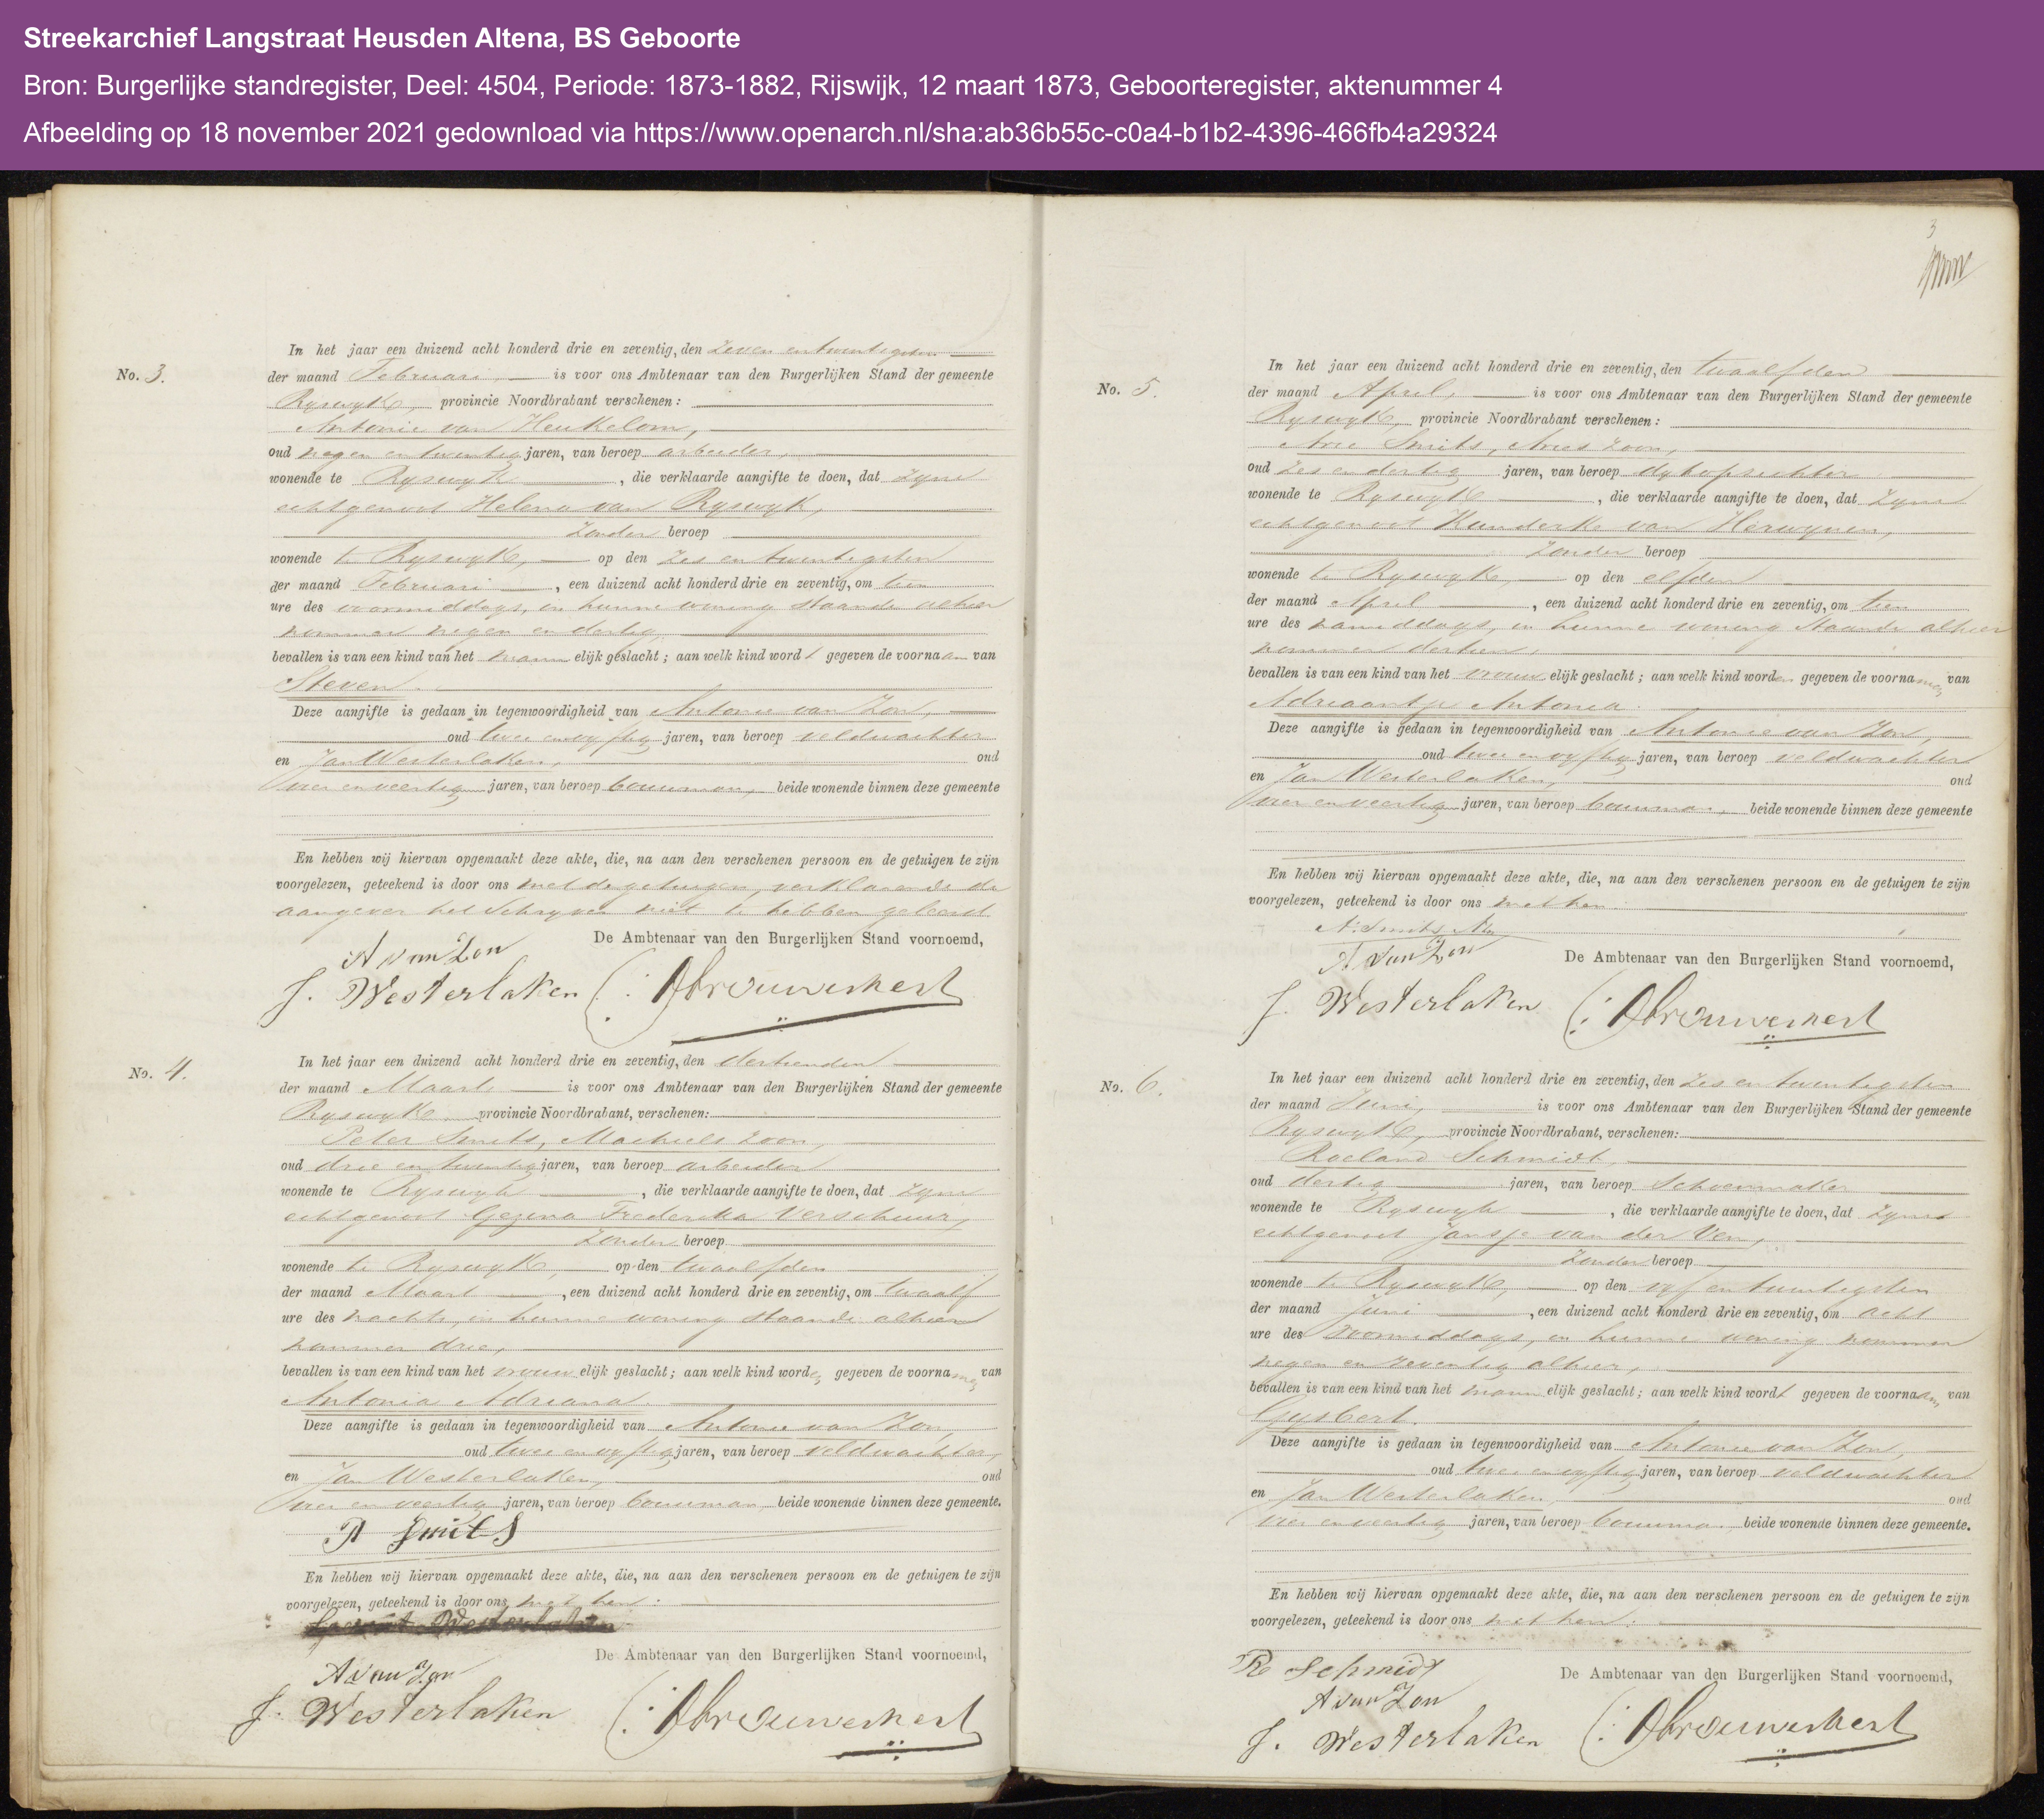 Streekarchief Langstraat Heusden Altena, BS Geboorte
Bron: Burgerlijke standregister, Deel: 4504, Periode: 1873-1882, Rijswijk, 12 maart 1873, Geboorteregister, aktenummer 4
Afbeelding op 18 november 2021 gedownload via https://www.openarch.nl/sha:ab36b55c-c0a4-b1b2-4396-466fb4a29324
No. 3.
In het jaar een duizend acht honderd drie en zeventig, den zeven en twintigsten
der maand Februari, is voor ons Ambtenaar van den Burgerlijken Stand der gemeente
Ryswyk, provincie Noordbrabant verschenen:
Antonie van Heukelom,
oud negen en twintig jaren, van beroep arbeider,
wonende te Ryswyk, die verklaarde aangifte te doen, dat zyne
echtgenoot Helena van Ryswyk,
zonder beroep
wonende te Ryswyk, op den zes en twintigsten
der maand Februari, een duizend acht honderd drie en zeventig, om tien
ure des voormiddags, in hunne woning staande alhier
nommer negen en dertig,
bevallen is van een kind van het mannelijk geslacht; aan welk kind wordt gegeven de voornaam van
Steven.
Deze aangifte is gedaan in tegenwoordigheid van Antonie van Zon,
oud twee en vyftig jaren, van beroep veldwachter
en Jan Westerlaken, oud
vier en veertig jaren, van beroep bouwman, beide wonende binnen deze gemeente
En hebben wij hiervan opgemaakt deze akte, die, na aan den verschenen persoon en de getuigen te zijn
voorgelezen, geteekend is door ons met de getuigen, verklarende de
aangever het schryven niet te hebben geleerd
De Ambtenaar van den Burgerlijken Stand voornoemd,
A van Zon
J. Westerlaken
No. 4.
In het jaar een duizend acht honderd drie en zeventig, den dertienden
der maand Maart is voor ons Ambtenaar van den Burgerlijken Stand der gemeente
Ryswyk provincie Noordbrabant, verschenen:
Peter Smits, Machiels zoon,
oud drie en twintig jaren, van beroep arbeider
wonende te Ryswyk, die verklaarde aangifte te doen, dat zyne
echtgenoot Gezina Frederika Verschuur,
zonder beroep
wonende te Ryswyk, op den twaalfden
der maand Maart, een duizend acht honderd drie en zeventig, om twaalf
ure des nachts, in hunne woning staande alhier
nommer drie,
bevallen is van een kind van het vrouwelijk geslacht; aan welk kind worden gegeven de voornamen van
Antonia Adriana.
Deze aangifte is gedaan in tegenwoordigheid van Antonie van Zon,
oud twee en vyftig jaren, van beroep veldwachter,
en Jan Westerlaken, oud
vier en veertig jaren, van beroep bouwman, beide wonende binnen deze gemeente.
P Smits
En hebben wij hiervan opgemaakt deze akte, die, na aan den verschenen persoon en de getuigen te zijn
voorgelezen, geteekend is door ons met hen.
De Ambtenaar van den Burgerlijken Stand voornoemd,
A van Zon
J. Westerlaken
3
No. 5.
In het jaar een duizend acht honderd drie en zeventig, den twaalfden
der maand April, is voor ons Ambtenaar van den Burgerlijken Stand der gemeente
Ryswyk, provincie Noordbrabant verschenen:
Arie Smits, Aries zoon,
oud zes en dertig jaren, van beroep dykopzichter
wonende te Ryswyk, die verklaarde aangifte te doen, dat zyne
echtgenoot Kunderke van Herwynen,
zonder beroep
wonende te Ryswyk, op den elfden
der maand April, een duizend acht honderd drie en zeventig, om tien
ure des namiddags, in hunne woning staande alhier
nommer dertien,
bevallen is van een kind van het vrouwelijk geslacht; aan welk kind worden gegeven de voornamen van
Adriaantje Antonia.
Deze aangifte is gedaan in tegenwoordigheid van Antonie van Zon,
oud twee en vyftig jaren, van beroep veldwachter
en Jan Westerlaken, oud
vier en veertig jaren, van beroep bouwman, beide wonende binnen deze gemeente
En hebben wij hiervan opgemaakt deze akte, die, na aan den verschenen persoon en de getuigen te zijn
voorgelezen, geteekend is door ons met hen.
A. Smits Az
A van Zon
De Ambtenaar van den Burgerlijken Stand voornoemd,
J. Westerlaken
No. 6.
In het jaar een duizend acht honderd drie en zeventig, den zes en twintigsten
der maand Juni, is voor ons Ambtenaar van den Burgerlijken Stand der gemeente
Ryswyk, provincie Noordbrabant, verschenen:
Roeland Schmidt,
oud dertig jaren, van beroep Schoenmaker
wonende te Ryswyk, die verklaarde aangifte te doen, dat zyne
echtgenoot Jansje van der Ven,
zonder beroep
wonende te Ryswyk, op den vyf en twintigsten
der maand Juni, een duizend acht honderd drie en zeventig, om acht
ure des voormiddags, in hunne woning nommer
negen en zeventig alhier,
bevallen is van een kind van het mannelijk geslacht; aan welk kind wordt gegeven de voornaam van
Gysbert.
Deze aangifte is gedaan in tegenwoordigheid van Antonie van Zon,
oud twee en vyftig jaren, van beroep veldwachter
en Jan Westerlaken, oud
vier en veertig jaren, van beroep bouwman beide wonende binnen deze gemeente.
En hebben wij hiervan opgemaakt deze akte, die, na aan den verschenen persoon en de getuigen te zijn
voorgelezen, geteekend is door ons met hen.
R Schmidt
De Ambtenaar van den Burgerlijken Stand voornoemd,
A van Zon
J. Westerlaken